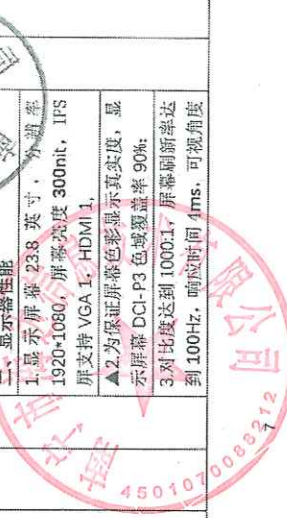 二、显示器性能
1.显示屏幕 23.8 英寸，分辨率
1920*1080，屏幕亮度 300nit，IPS
屏支持 VGA 1，HDMI 1，
▲2.为保证屏幕色彩显示真实度，显
示屏幕 DCI-P3 色域覆盖率 90%；
3.对比度达到 1000:1，屏幕刷新率达
到 100Hz，响应时间 4ms，可视角度
限公司
4501070088212
7